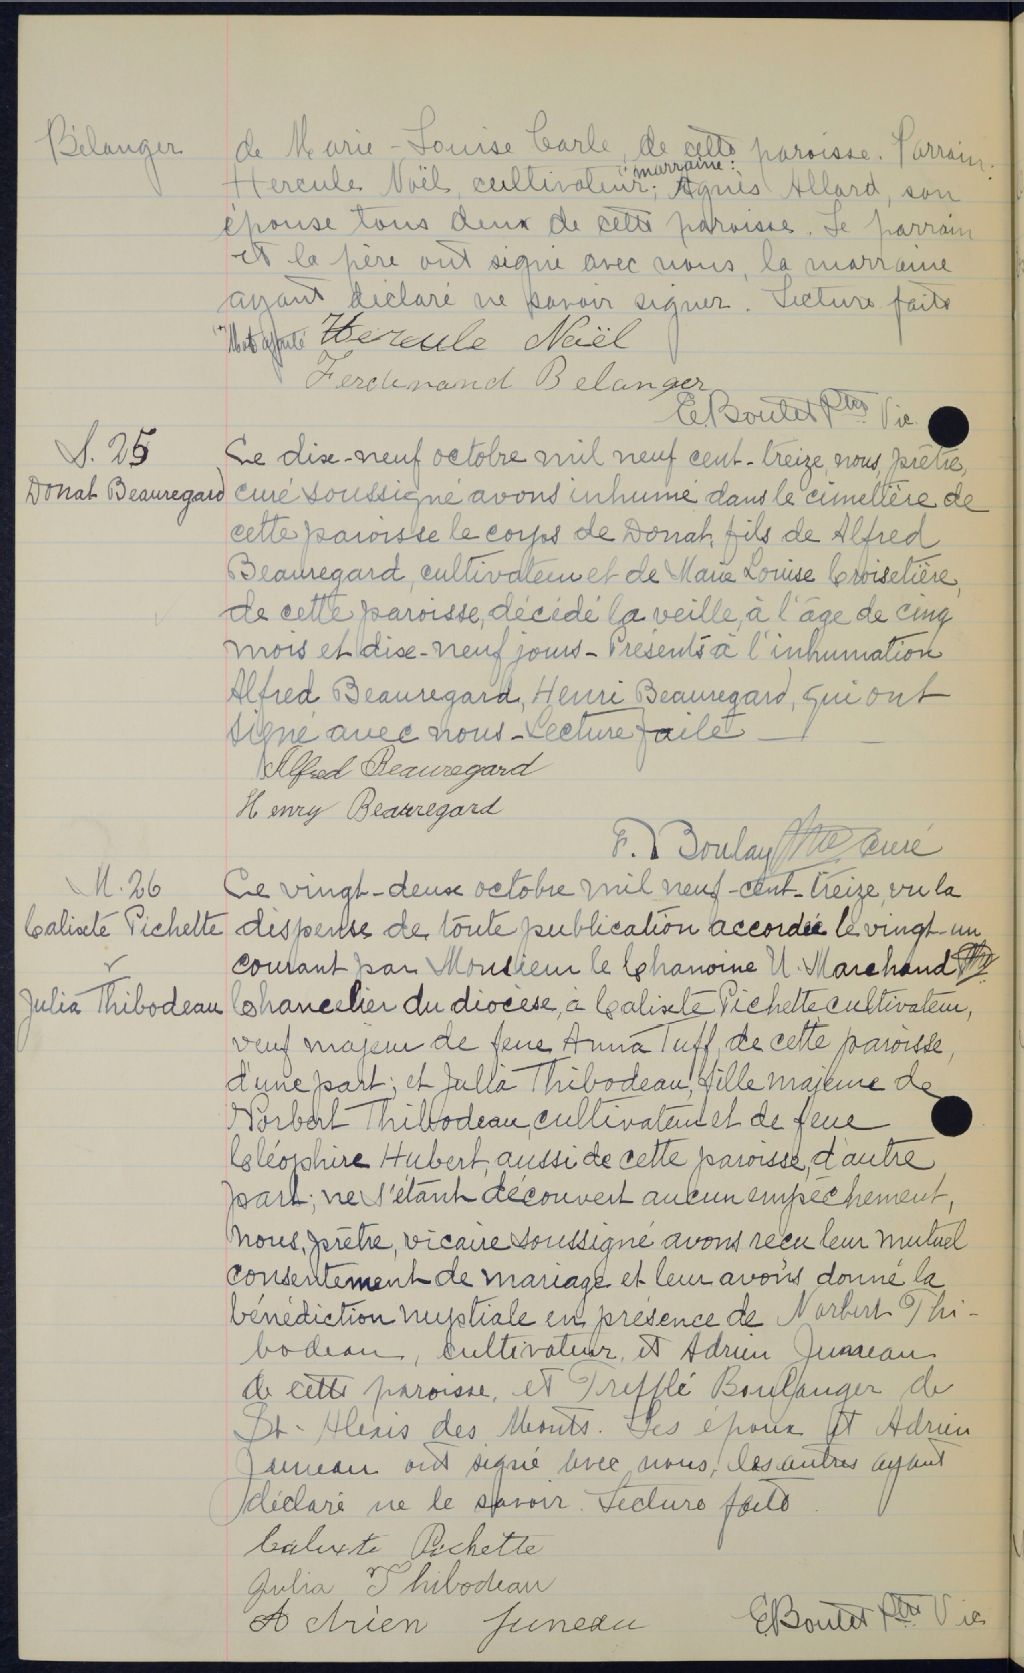 Bélanger
de Marie-Louise Carle, de cette paroisse. Parrain:
(") marraine:
Hercule Noël, cultivateur; Agnès Allard, son
épouse tous deux de cette paroisse. Le parrain
et le père ont signé avec nous, la marraine
ayant déclaré ne savoir signer. Lecture faite
(") Mot ajouté Hercule Noël
Ferdinand Belanger
E. Boutet Ptre Vic
S. 25
Donat Beauregard
Le dix-neuf octobre mil neuf cent-treize, nous, prêtre,
curé soussigné avons inhumé dans le cimetière de
cette paroisse le corps de Donat, fils de Alfred
Beauregard, cultivateur et de Marie Louise Croisetière,
de cette paroisse, décédé la veille, à l'âge de cinq
mois et dix-neuf jours - Présents à l'inhumation
Alfred Beauregard, Henri Beauregard, qui ont
signé avec nous - Lecture faite
Alfred Beauregard
Henry Beauregard
F. Boulay Ptre curé
M. 26
Calixte Pichette
Julia Thibodeau
Le vingt-deux octobre mil neuf-cent-treize, vu la
dispense de toute publication accordée le vingt-un
courant par Monsieur le Chanoine U. Marchand Ptre
Chancelier du diocèse, à Calixte Pichette cultivateur,
veuf majeur de feue Anna Tuff, de cette paroisse,
d'une part; et Julia Thibodeau, fille majeure de
Norbert Thibodeau, cultivateur et de feue
Cléophire Hubert, aussi de cette paroisse, d'autre
part; ne s'étant découvert aucun empêchement,
nous, prêtre, vicaire soussigné avons reçu leur mutuel
consentement de mariage et leur avons donné la
bénédiction nuptiale en présence de Norbert Thi-
bodeau, cultivateur, et Adrien Juneau
de cette paroisse, et Trefflé Boulanger de
St-Alexis des Monts. Les époux et Adrien
Juneau ont signé avec nous, les autres ayant
déclaré ne le savoir. Lecture faite.
Calixte Pichette
Julia Thibodeau
Adrien Juneau E. Boutet Ptre Vic